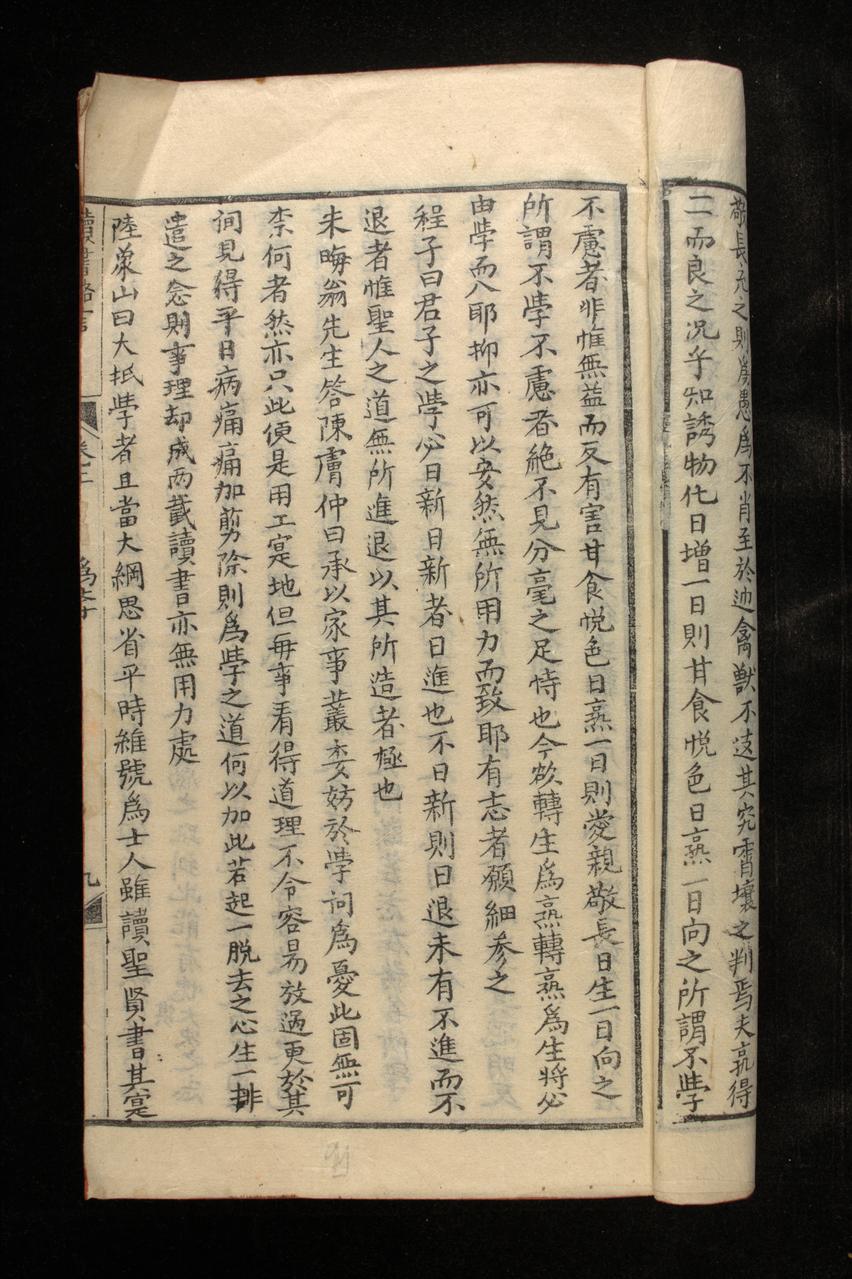 敬長充之則爲愚爲不肖至於迪禽獸不逺其究霄壤之判焉夫孰得
二而良之況乎知誘物化日增一日則甘食悅色日熟一日向之所謂不學
不慮者非惟無益而反有害甘食悅色日熟一日則愛親敬長日生一日向之
所謂不學不慮者絶不見分毫之足恃也今欲轉生爲熟轉熟爲生將必
由學而入耶抑亦可以安然無所用力而致耶有志者願細參之
程子曰君子之學必日新日新者日進也不日新則日退未有不進而不
退者惟聖人之道無所進退以其所造者極也
朱晦翁先生答陳膚仲曰承以家事叢委妨於學問爲憂此固無可
柰何者然亦只此便是用工寔地但每事看得道理不令容易放過更於其
間見得平日病痛痛加剪除則爲學之道何以加此若起一脫去之心生一排
遣之念則事理却成兩截讀書亦無用力處
陸象山曰大抵學者且當大綱思省平時雖號爲士人雖讀聖賢書其寔
讀書略言 卷二 爲學 九